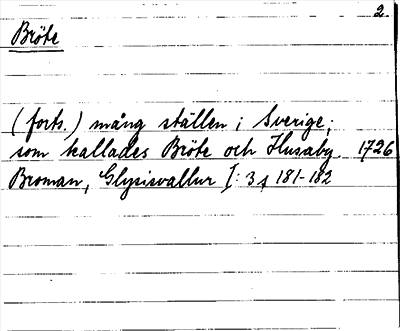 2.
Bröte
(forts.) mång ställen i Sverige;
som kallades Bröte och Husaby 1726
Broman, Glysisvallur I: 3, 181-182